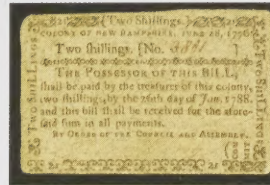 2s {Two Shillings.} 2s
COLONY OF NEW HAMPSHIRE, JUNE 28, 1776
Two shillings. {No. ]
THE POSSESSOR OF THIS BILL,
shall be paid by the treasurer of this colony,
two shillings, by the 26th day of Jan. 1788.
and this bill shall be received for the afore-
said sum in all payments.
BY ORDER OF THE COUNCIL AND ASSEMBLY.
2s 2s
Two Shillings
Two Shillings